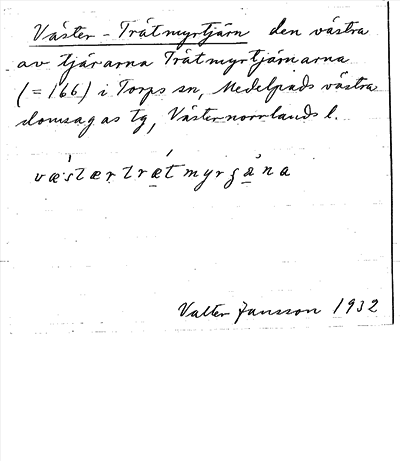 Väster-Tråtmyrtjärn den västra
av tjärarna Tråtmyrtjärnarna
(=166) i Torps sn, Medelpads västra
domsagas tg, Västernorrlands l.
Valter Jansson 1932